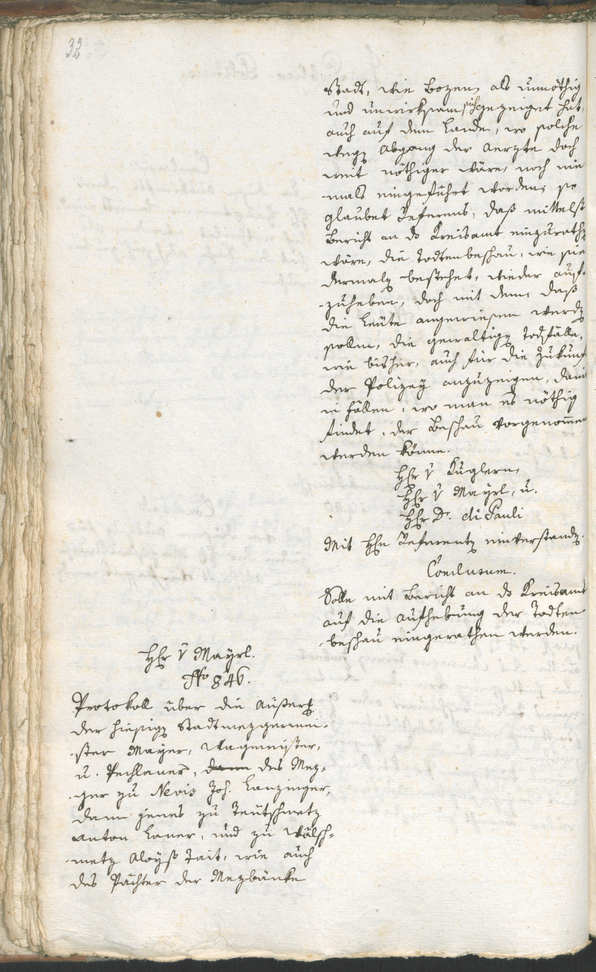 32
Stadt, wie Bozen, als unnöthig
und unwirksam sich gezeiget hat,
auch auf dem Lande, wo solche
wegen Abgang der Aerzte doch
weit nöthiger wäre, noch nie
mals eingeführt worden; so
glaubet Referens, daß mittelst
Bericht an das Kreisamt einzurathen
wäre, die Todtenbeschau, wie sie
dermalen bestehet, wieder auf-
zuheben, doch mit dem, daß
die Leute angewiesen werden
sollen, die gewaltigen Todfälle,
wie bisher, auch für die Zukunft
der Polizey anzuzeigen, damit
in Fällen, wo man es nöthig
findet, der Beschau vorgenommen
werden könne.
Herr v. Kuglern,
Herr v. Mayrl, u.
Herr D. di Pauli
Mit Herrn Referenten einverstanden.
Conclusum.
Solle mit Bericht an das Kreisamt
auf die Aufhebung der Todten-
beschau eingerathen werden.
Herr v. Mayrl.
No 846.
Protokoll über die Außerung
der hiesigen Stadtmezgermei-
ster Mayer, Wagmeister,
u. Pechlaner, dann des Mez-
ger zu Nevis Joh. Lanzinger,
dann jenes zu Teutschmetz
Anton Laner, und zu Wälsch-
metz Aloys Tait, wie auch
des Pächter der Mezbänke